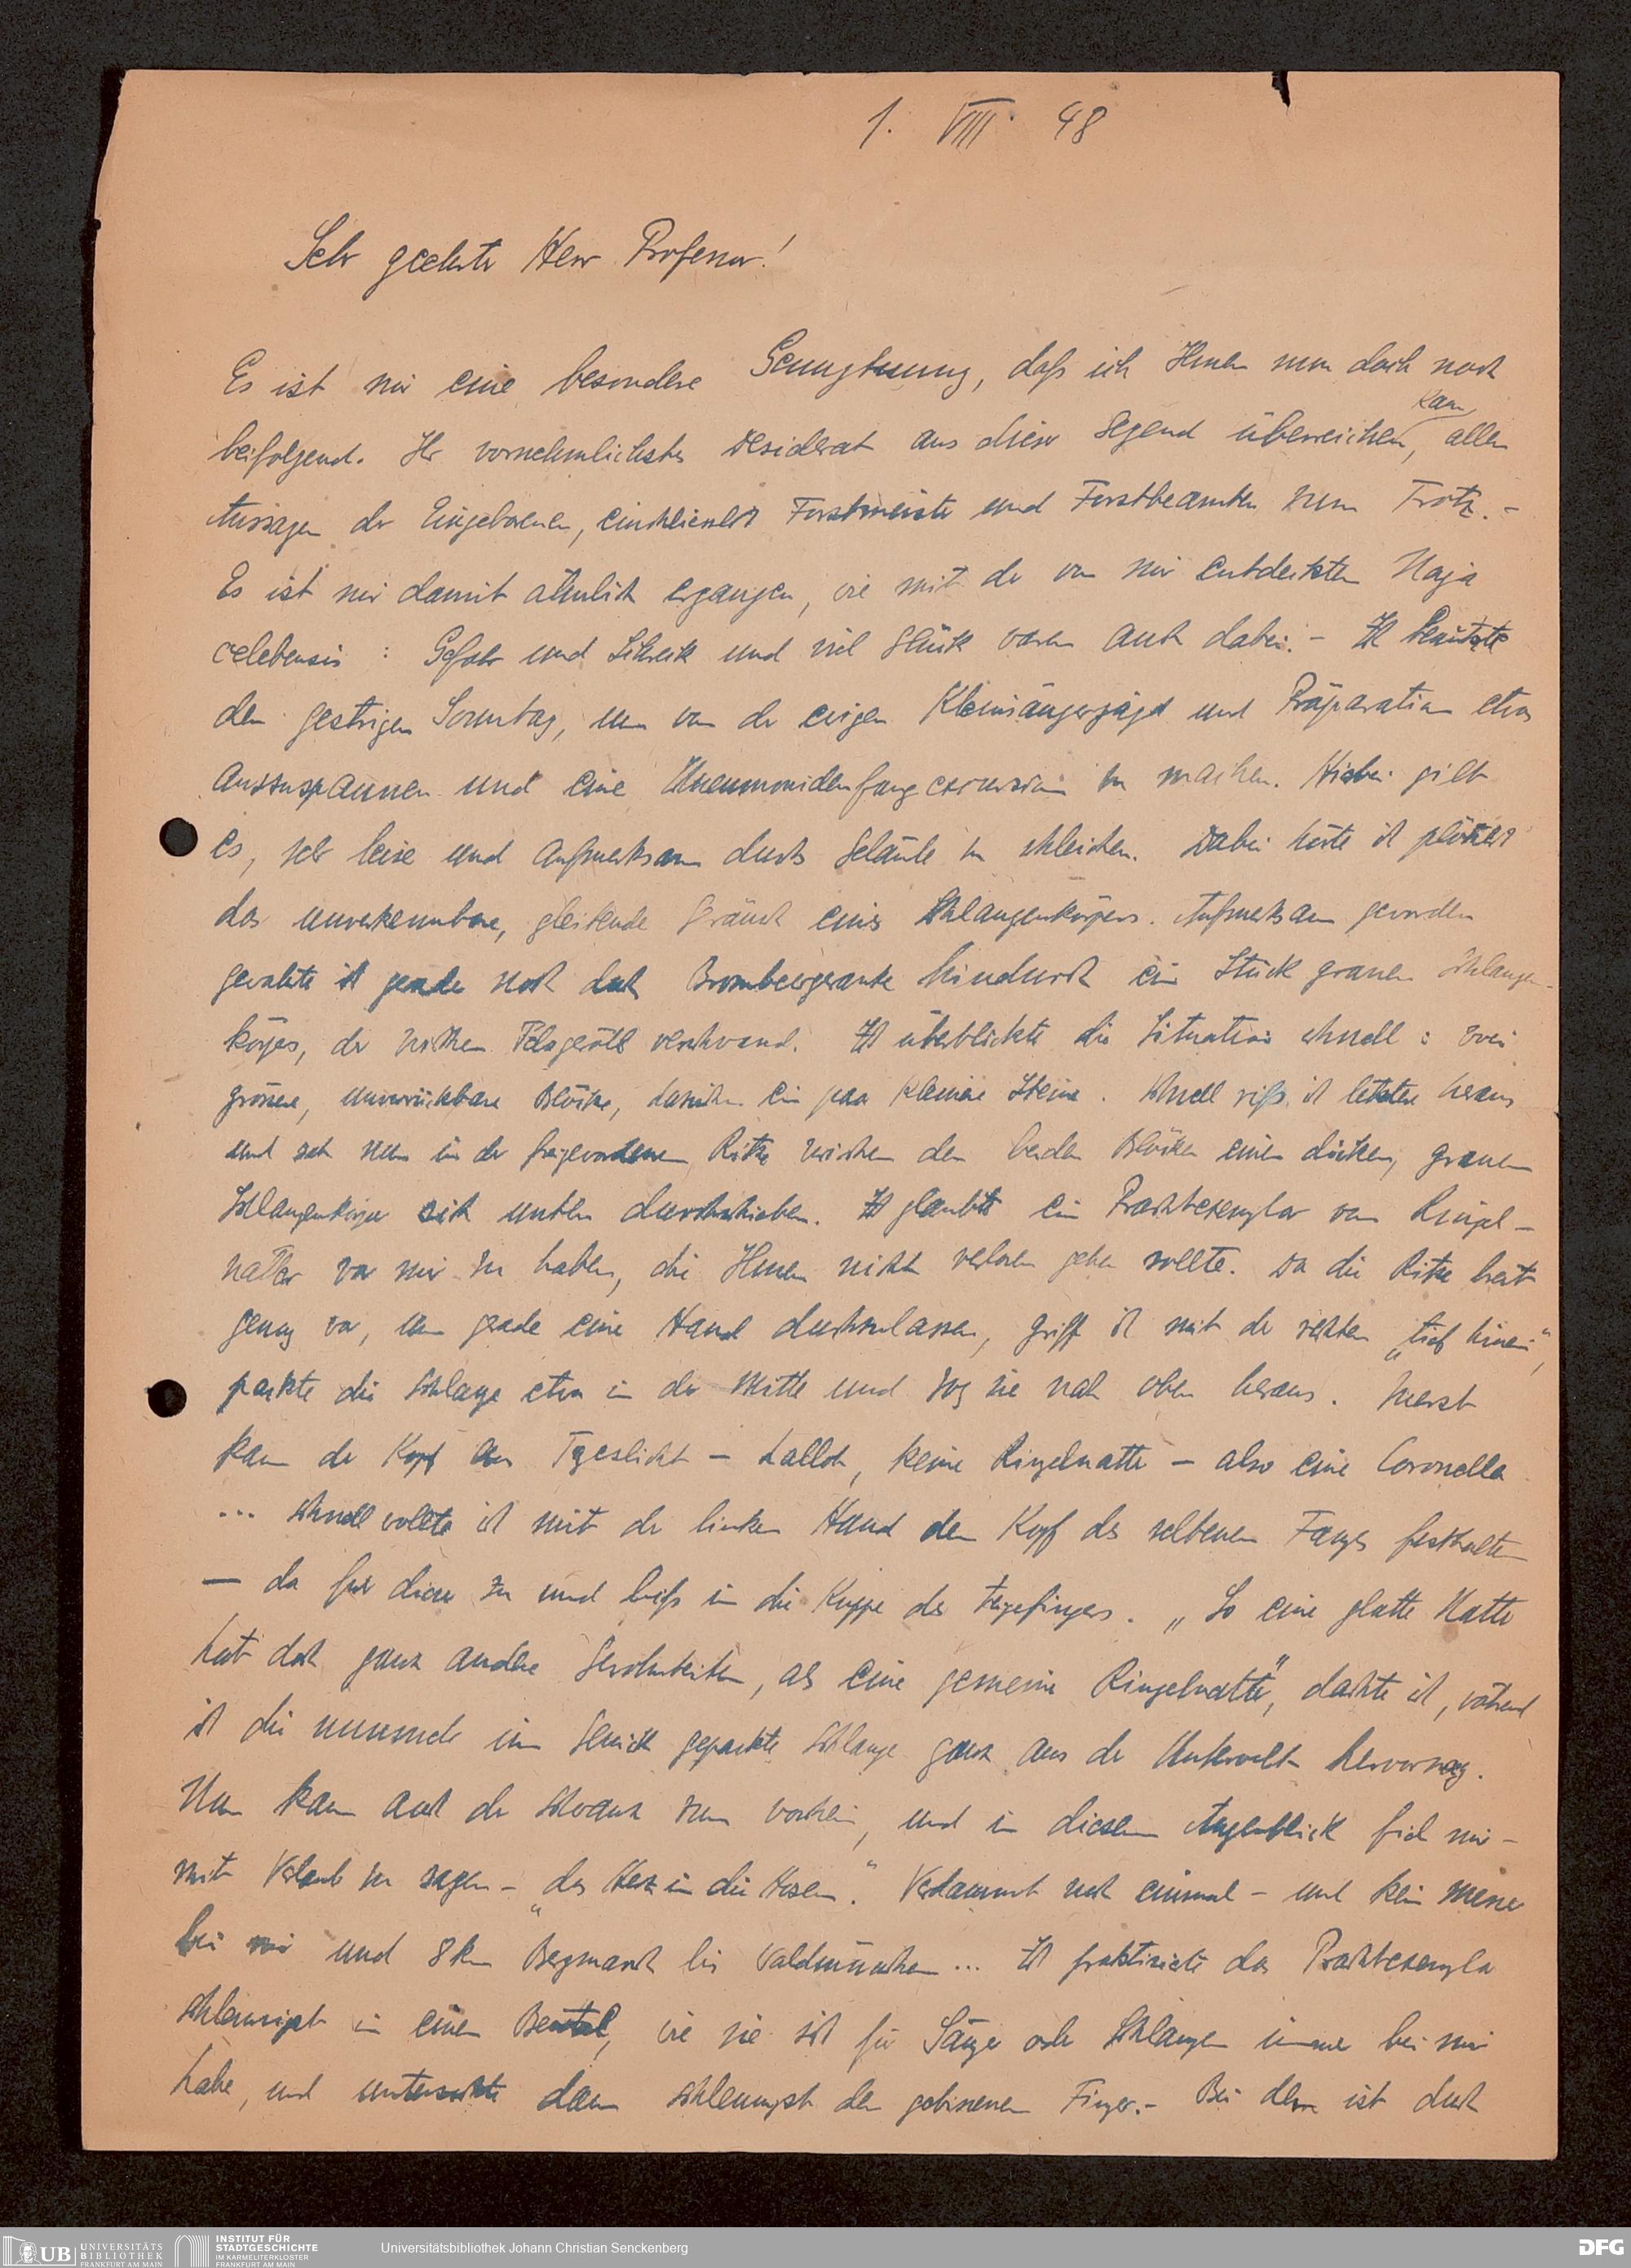 1. VIII. 48
Sehr geehrter Herr Professor!
Es ist mir eine besondere Genugtuung, daß ich Ihnen nun doch noch
kann
beifolgend. Ihr vornehmlichstes Desiderat aus dieser Gegend überreichen, allen
Aussagen der Eingeborenen, einschliesslich Forstmeister und Forstbeamten zum Trotz. -
Es ist mir damit ähnlich ergangen, wie mit der von mir entdeckten Naja
celebensis: Gefahr und Schreck und viel Glück waren auch dabei. - Ich benützte
den gestrigen Sonntag, um von der ewigen Kleinsäugerjagd und Präparation etwas
auszuspannen und eine Ichneumonidenfangexcursion zu machen. Hierbei gilt
es, sehr leise und aufmerksam durchs Gelände zu schleichen. Dabei hörte ich plötzlich
das unverkennbare, gleitende Geräusch eines Schlangenkörpers. Aufmerksam geworden
gewahrte ich gerade noch durch Brombeergeranke hindurch ein Stück grauen Schlangen-
körpers, der zwischen Felsgeröll verschwand. Ich überblickte die Situation schnell: zwei
grössere, unverrückbare Blöcke, dazwischen ein paar kleinere Steine. Schnell riß ich letztere heraus
und sah nun in der freigewordenen Ritze zwischen den beiden Blöcken einen dicken, grauen
Schlangenkörper sich unten durchschieben. Ich glaubte ein Prachtexemplar von Ringel-
natter vor mir zu haben, die Ihnen nicht verloren gehen sollte. Da die Ritze breit
genug war, um gerade eine Hand durchzulassen, griff ich mit der rechten „tief hinein“,
packte die Schlange etwa in der Mitte und zog sie nach oben heraus. Zuerst
kam der Kopf ans Tageslicht - halloh, keine Ringelnatter - also eine Coronella
... Schnell wollte ich mit der linken Hand den Kopf des seltenen Fanges festhalten
- da fuhr dieser zu und biß in die Kuppe des Zeigefingers. „So eine glatte Natter
hat doch ganz andere Gewohnheiten, als eine gemeine Ringelnatter“, dachte ich, während
ich die nunmehr im Genick gepackte Schlange ganz aus der Unterwelt hervorzog.
Nun kam auch der Schwanz zum Vorschein, und in diesem Augenblick fiel mir -
mit Verlaub zu sagen - „das Herz in die Hosen“. Verdammt noch einmal - und kein Messer
bei mir und 8 km Bergmarsch bis Waldmünchen ... Ich praktizierte das Prachtexemplar
schleunigst in einen Beutel, wie sie ich für Säuger oder Schlangen immer bei mir
habe, und untersuchte dann schleunigst den gebissenen Finger. - Bei dem ist durch
Universitätsbibliothek Johann Christian Senckenberg
UB UNIVERSITÄTS BIBLIOTHEK FRANKFURT AM MAIN
INSTITUT FÜR STADTGESCHICHTE IM KARMELITERKLOSTER FRANKFURT AM MAIN
DFG